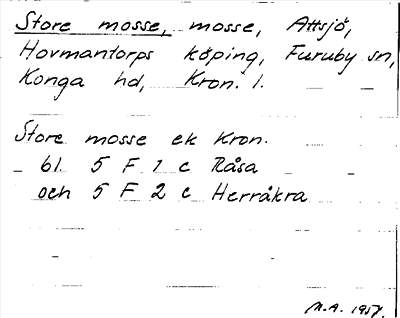 Store mosse, mosse, Attsjö,
Hovmantorps köping, Furuby sn,
Konga hd, Kron. l.
Store mosse ek Kron.
bl. 5 F 1 c Råsa
och 5 F 2 c Herråkra
M.A. 1957.